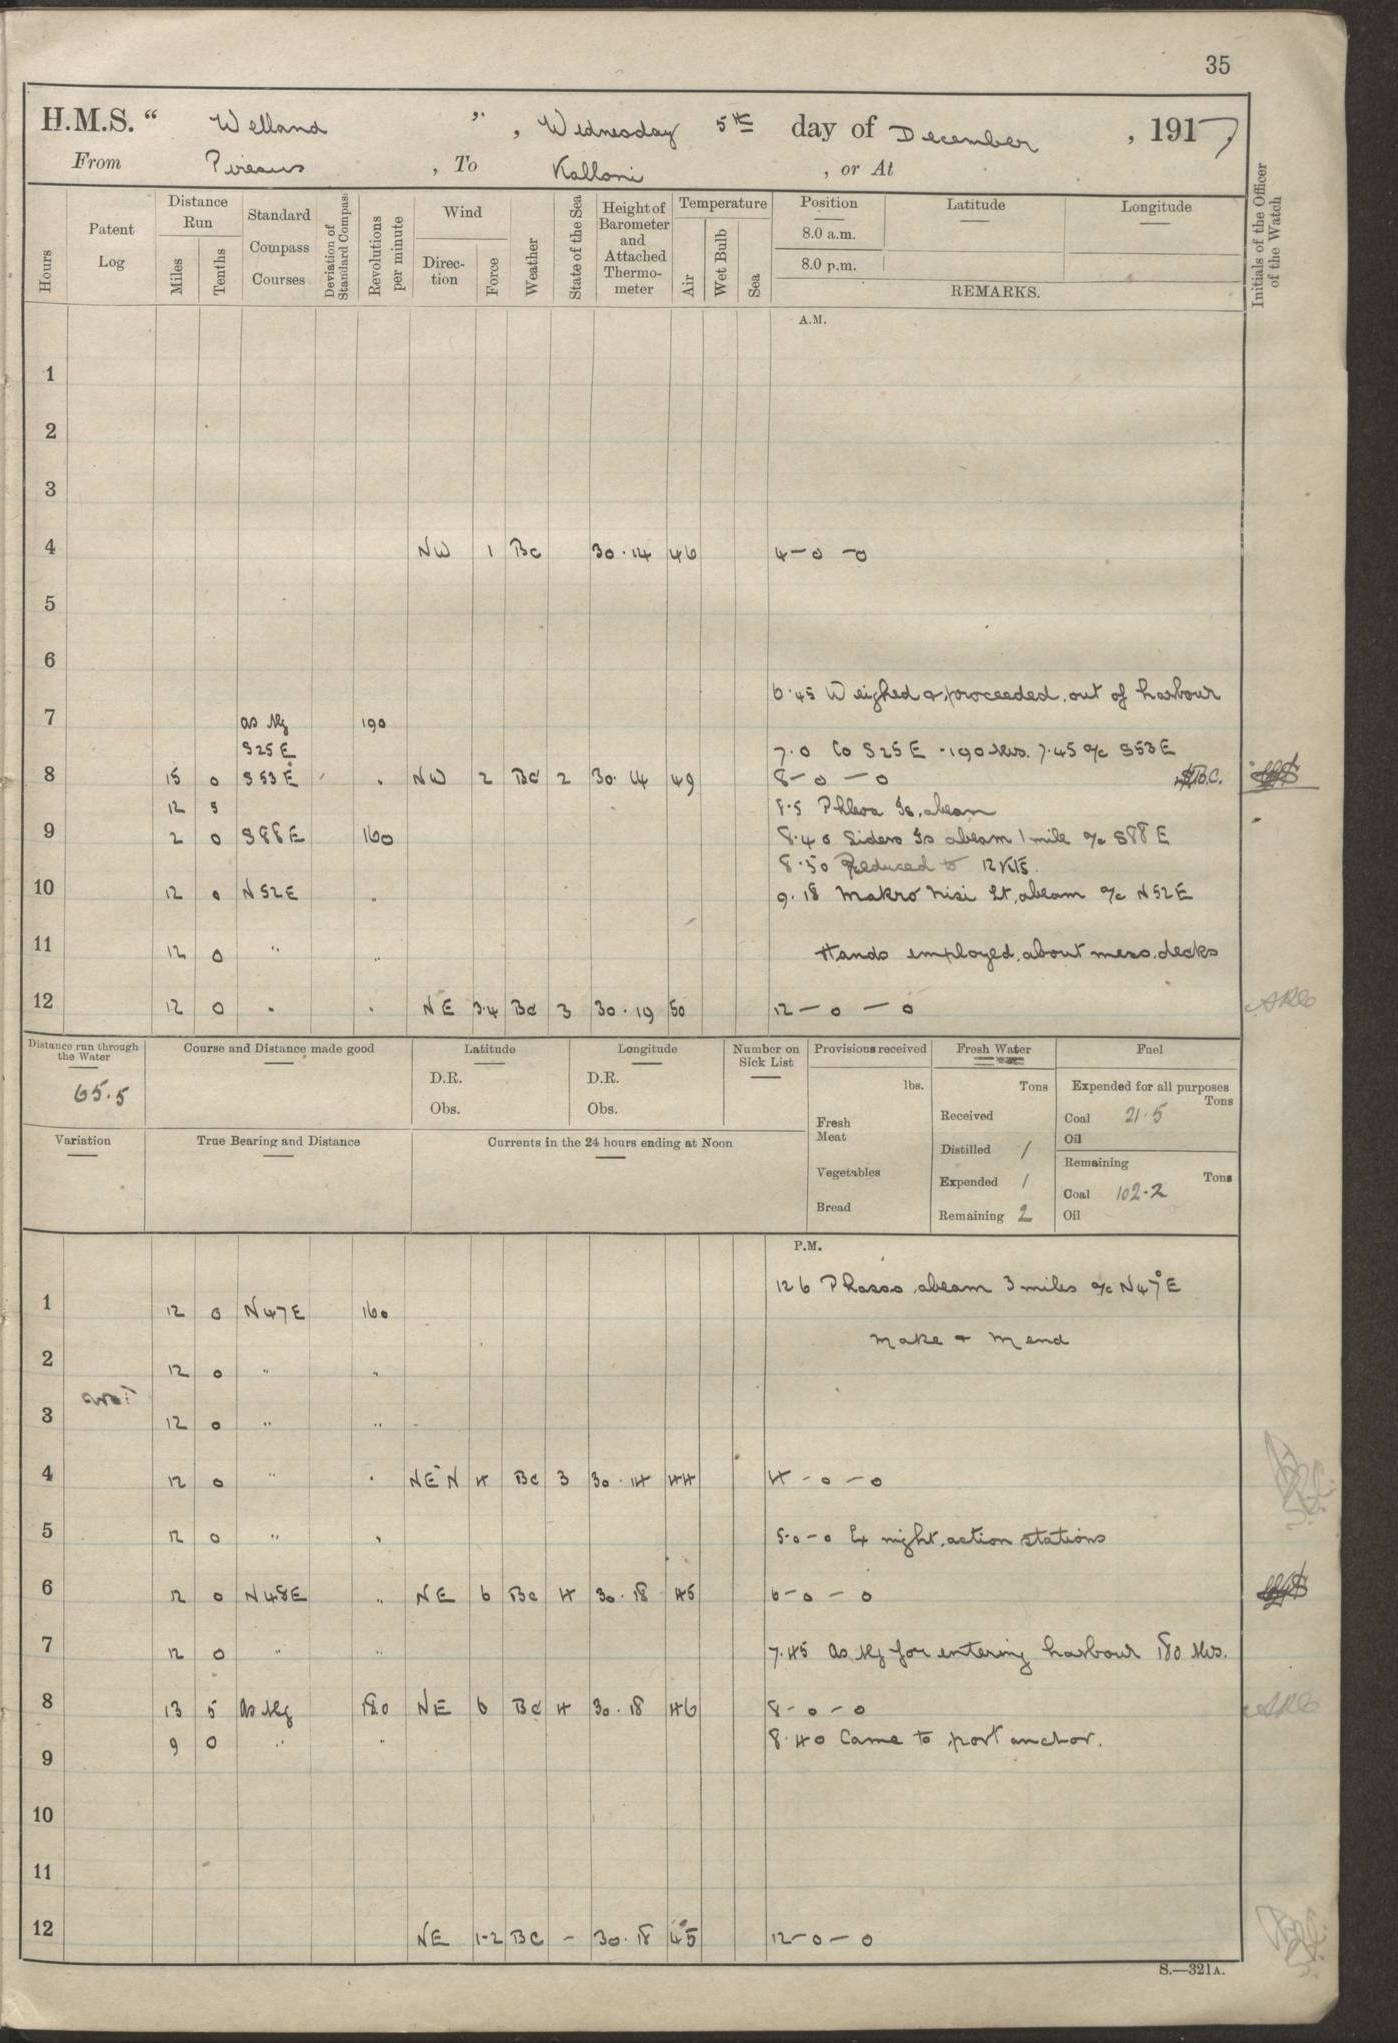 35
H.M.S. “ Welland ” , Wednesday 5th day of December , 1917
From Piraeus , To Kalloni , or At
Hours
Patent Log
Distance Run
Miles
Tenths
Standard Compass Courses
Deviation of Standard Compass
Revolutions per minute
Wind
Direction
Force
Weather
State of the Sea
Height of Barometer and Attached Thermometer
Temperature
Air
Wet Bulb
Sea
Position
8.0 a.m.
8.0 p.m.
Latitude
Longitude
REMARKS.
Initials of the Officer of the Watch
A.M.
1
2
3
4 NW 1 Bc 30.14 46 4-0-0
5
6
6.45 Weighed & proceeded out of harbour
7 190
S25E 7.0 Co S25E - 190 Revs. 7.45 a/c S53E
8 15 0 S53E NW 2 Bc 2 30.14 49 8-0-0
12 5 8.5 Phleva Is. abeam
9 2 0 S88E 160 8.40 abeam 1 mile a/c S88E
8.50 Reduced to 12 Kts.
10 12 0 N52E 9.18 Makro Nisi Lt. abeam a/c N52E
11 12 0 " " Hands employed about mess decks
12 12 0 " " NE 3.4 Bc 3 30.19 50 12-0-0
Distance run through the Water
65.5
Course and Distance made good
Latitude
D.R.
Obs.
Longitude
D.R.
Obs.
Number on Sick List
Provisions received
lbs.
Fresh Meat
Vegetables
Bread
Fresh Water
Tons
Received
Distilled 1
Expended 1
Remaining 2
Fuel
Expended for all purposes
Tons
Coal 21.5
Oil
Remaining
Tons
Coal 102.2
Oil
Variation
True Bearing and Distance
Currents in the 24 hours ending at Noon
P.M.
12 6 abeam 3 miles a/c N47°E
1 12 0 N47E 160
Make & Mend
2 12 0 " "
3 12 0 " "
4 12 0 " " 4 Bc 3 30.14 44 4-0-0
5 12 0 " " 5-0-0 Ex night action stations
6 12 0 N48E " NE 6 Bc 4 30.18 45 6-0-0
7 12 0 " " 7.45 for entering harbour 180 Revs.
8 13 5 180 NE 6 Bc 4 30.18 46 8-0-0
9 0 " " 8.40 Came to port anchor.
9
10
11
12 NE 1-2 BC - 30.18 45 12-0-0
S.—321A.